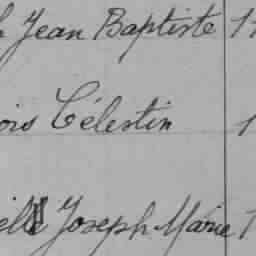 Jean Baptiste
ois Célestin
Joseph Marie